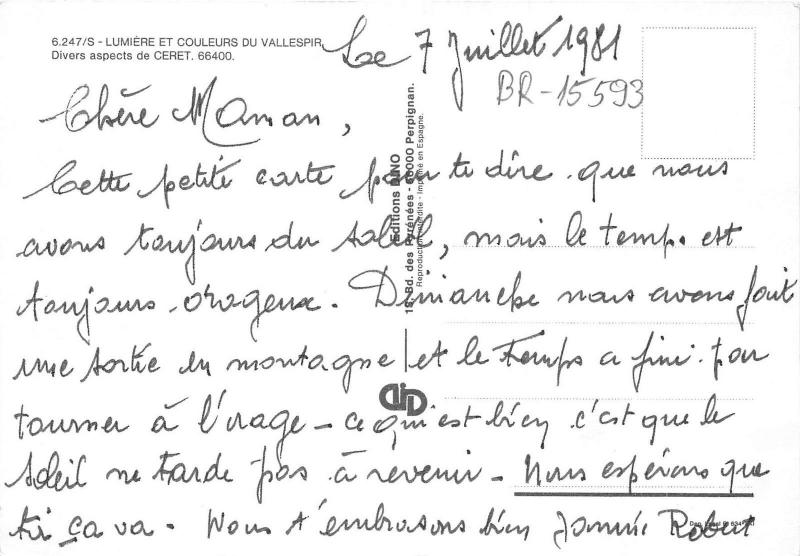 6.247/S - LUMIÈRE ET COULEURS DU VALLESPIR
Divers aspects de CERET. 66400.
Le 7 Juillet 1981
BR-15593
Chère Maman,
Cette petite carte pour te dire que nous
avons toujours du soleil, mais le temps est
toujours orageux. Dimanche nous avons fait
une sortie en montagne et le temps a fini par
tourner à l'orage - ce qui est bien c'est que le
soleil ne tarde pas à revenir - Nous espérons que
toi ça va. Nous t'embrassons bien Jannie Robert
Editions DINO
Bd. des Pyrénées - 66000 Perpignan.
Reproduction interdite - Imprimé en Espagne.